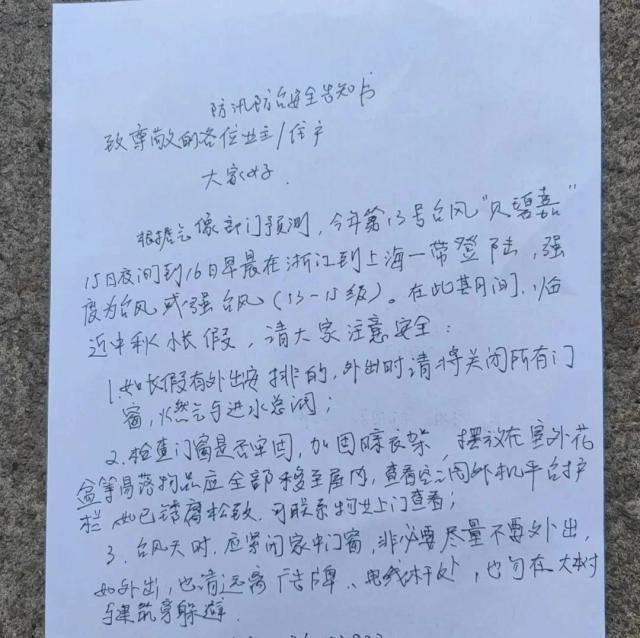 防汛防台安全告知书
致尊敬的各位业主/住户
大家好.
根据气像部门预测,今年第13号台风“贝碧嘉”
15日夜间到16日早晨在浙江到上海一带登陆,强
度为台风或强台风(13-15级)。在此其月间,临
近中秋小长假,请大家注意安全:
1.如长假有外出安排的,外出时请将关闭所有门
窗,燃气与进水总阀;
2.检查门窗是否牢固,加固晾衣架,摆放在室外花
盆等易落物品应全部移至屋内,查看空调外机平台护
栏如已锈腐松致.可联系物业上门查看;
3.台风天时,应紧闭家中门窗,非必要尽量不要外出,
如外出,也请远离广告牌、电线杆处,也勿在大树
与建筑旁躲避.